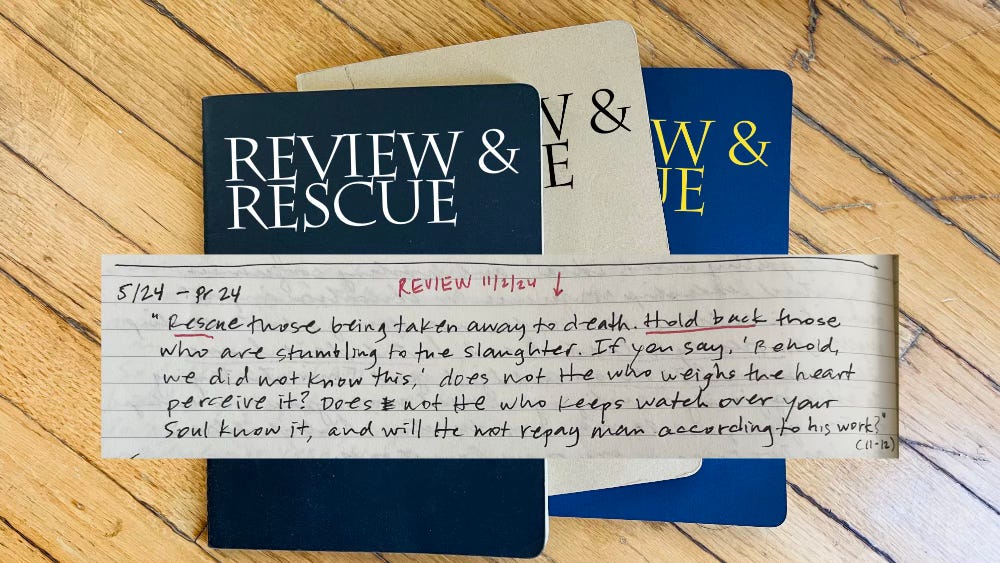 REVIEW &
RESCUE
W &
E
W &
UE
5/24 - Pr 24
REVIEW 11/2/24 ↓
"Rescue those being taken away to death. Hold back those
who are stumbling to the slaughter. If you say, 'Behold,
we did not know this,' does not He who weighs the heart
perceive it? Does not He who keeps watch over your
soul know it, and will He not repay man according to his work?"
(11-12)